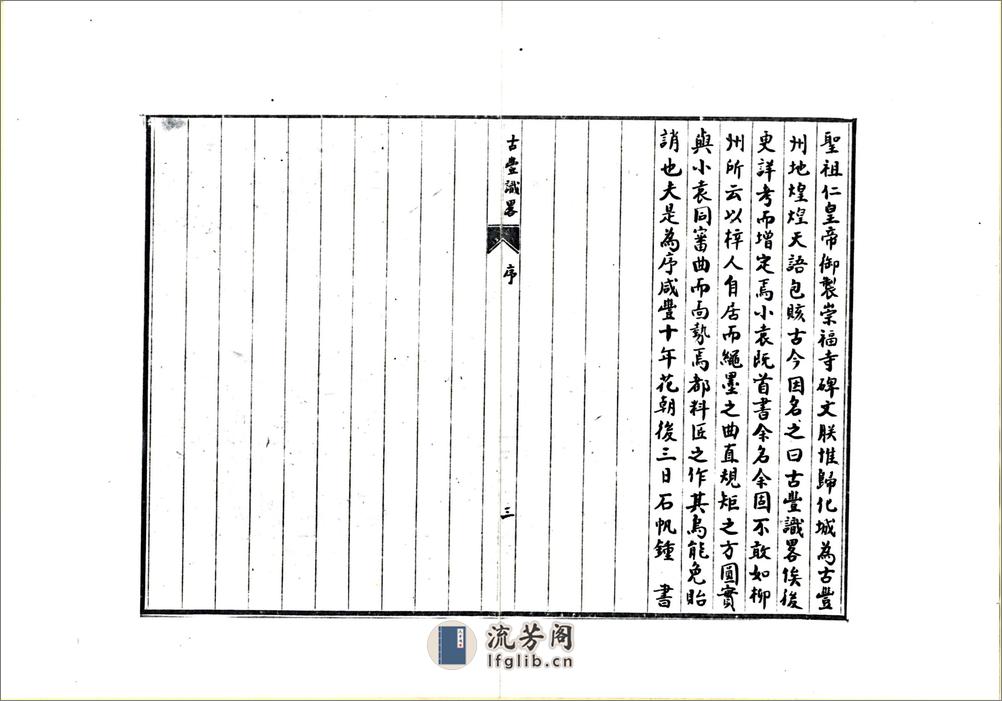 聖祖仁皇帝御製崇福寺碑文朕惟歸化城為古豐
州地煌煌天語包賅古今因名之曰古豐識畧俟後
更詳考而增定焉小袁既首書余名余固不敢如柳
州所云以梓人自居而繩墨之曲直規矩之方圓實
與小袁同審曲而面勢焉都料匠之作其烏能免貽
誚也夫是為序咸豐十年花朝後三日石帆鍾 書
古豐識畧
序
三
流芳阁
lfglib.cn